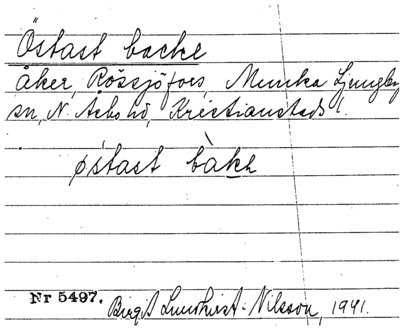 Östast backe
åker, Rössjöfors, Munka Ljungby
sn, N. Åsbo hd, Kristianstads l.
östast bàkə
Nr 5497. Birgit Lundkvist-Nilsson, 1941.